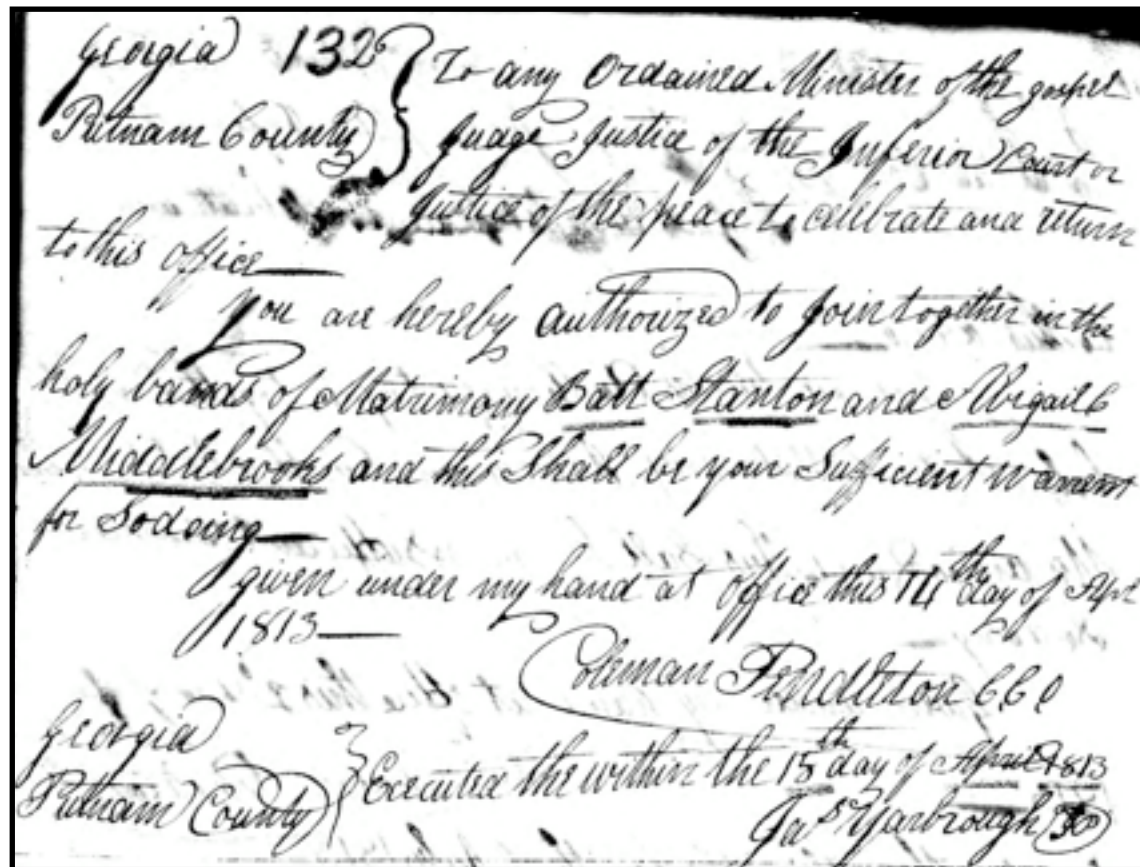 Georgia 132 } To any Ordained Minister of the gospel
Putnam County } Judge Justice of the Inferior Court or
Justice of the peace to celebrate and return
to this office —
you are hereby authorized to join together in the
holy bands of Matrimony Batt Stanton and Abigail C
Middlebrooks and this Shall be your Sufficient warrent
for Sodoing —
given under my hand at office this 14th day of Apr
1813 —
Coleman Pendleton CCO
Georgia } Executed the within the 15th day of April 1813
Putnam County } Jas Yarbrough